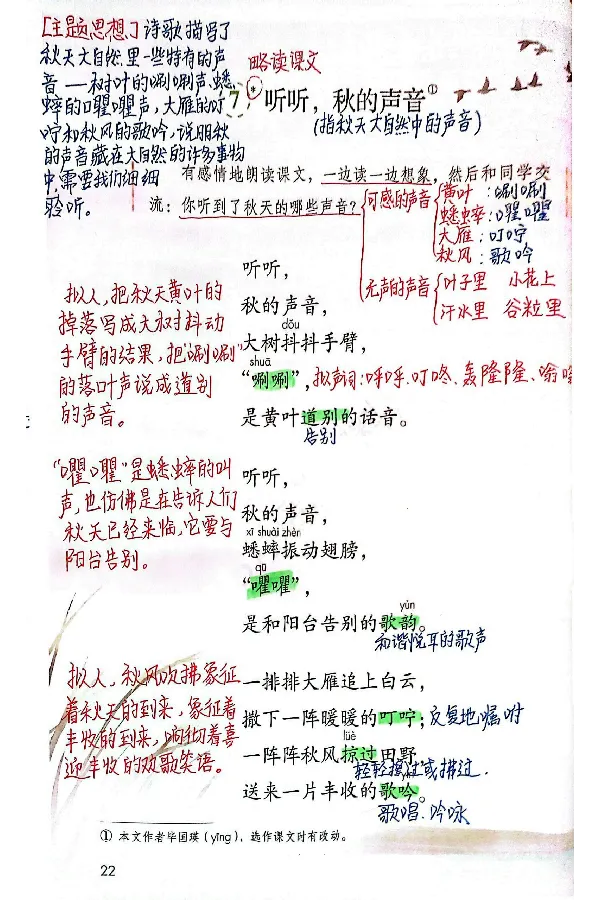 [主题思想]诗歌描写了
秋天大自然里一些特有的声
音——树叶的唰唰声、蟋
蟀的㘗㘗声,大雁的叮
咛和秋风的歌吟,说明秋
的声音藏在大自然的许多事物
中,需要我们细细
聆听。
略读课文
7* 听听,秋的声音①
(指秋天大自然中的声音)
有感情地朗读课文,一边读一边想象,然后和同学交
流:你听到了秋天的哪些声音?
可感的声音
黄叶:唰唰
蟋蟀:㘗㘗
大雁:叮咛
秋风:歌吟
无声的声音
叶子里 小花上
汗水里 谷粒里
听听,
秋的声音,
dǒu
大树抖抖手臂,
shuā
“唰唰”,
拟声词:呼呼、叮咚、轰隆隆、嗡嗡
是黄叶道别的话音。
告别
拟人,把秋天黄叶的
掉落写成大树抖动
手臂的结果,把唰唰
的落叶声说成道别
的声音。
听听,
秋的声音,
xī shuài zhèn
蟋蟀振动翅膀,
qú
“㘗㘗”,
yùn
是和阳台告别的歌韵。
和谐悦耳的歌声
“㘗㘗”是蟋蟀的叫
声,也仿佛是在告诉人们
秋天已经来临,它要与
阳台告别。
一排排大雁追上白云,
撒下一阵暖暖的叮咛;
反复地嘱咐
lüè
一阵阵秋风掠过田野,
轻轻擦过或拂过.
送来一片丰收的歌吟。
歌唱、吟咏
拟人,秋风吹拂象征
着秋天的到来,象征着
丰收的到来,响彻着喜
迎丰收的欢歌笑语。
① 本文作者毕国瑛(yīng),选作课文时有改动。
22